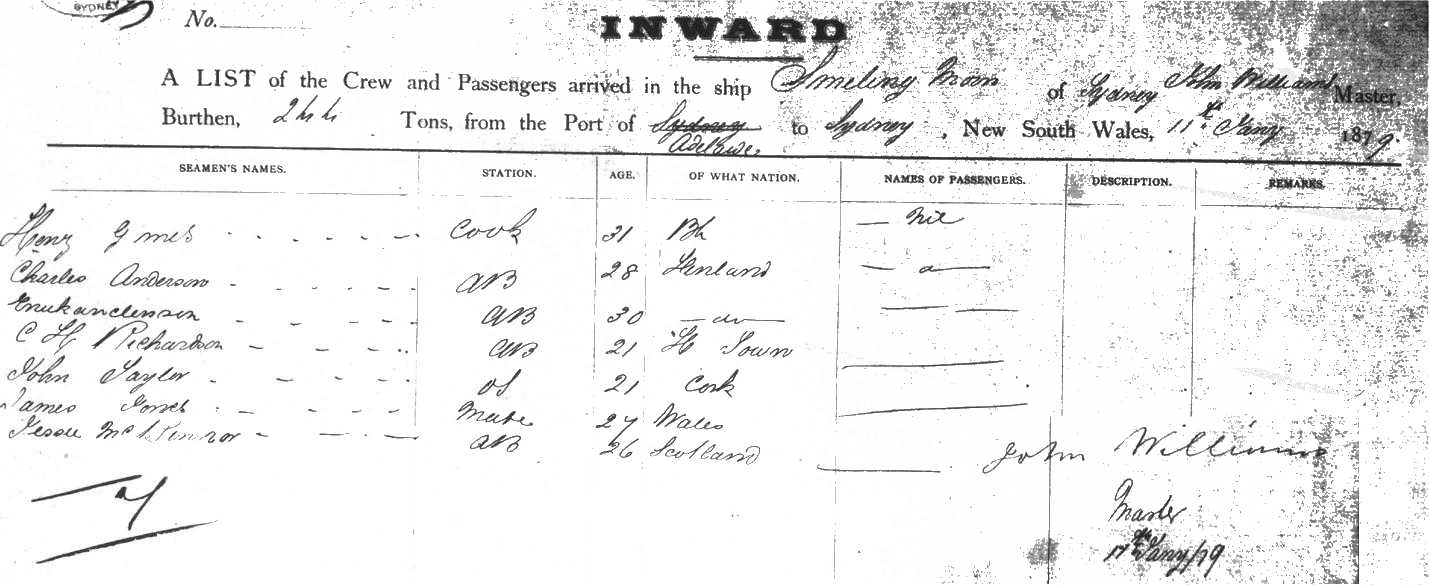 SYDNEY
No.
INWARD
A LIST of the Crew and Passengers arrived in the ship Smeling Moon of Sydney John Williams Master,
Burthen, 244 Tons, from the Port of Sydney to Sydney, New South Wales, 11th Jany 1879.
Adelaide
SEAMEN'S NAMES. STATION. AGE. OF WHAT NATION. NAMES OF PASSENGERS. DESCRIPTION. REMARKS.
Henry Cook 31 Nil
Charles Anderson AB 28 Finland
AB 30 - do -
C H Richardson AB 21 H Town
John Tayler OS 21 Cork
James Jones Mate 27 Wales
Jessie AB 26 Scotland
John Williams
Master
Jany/79